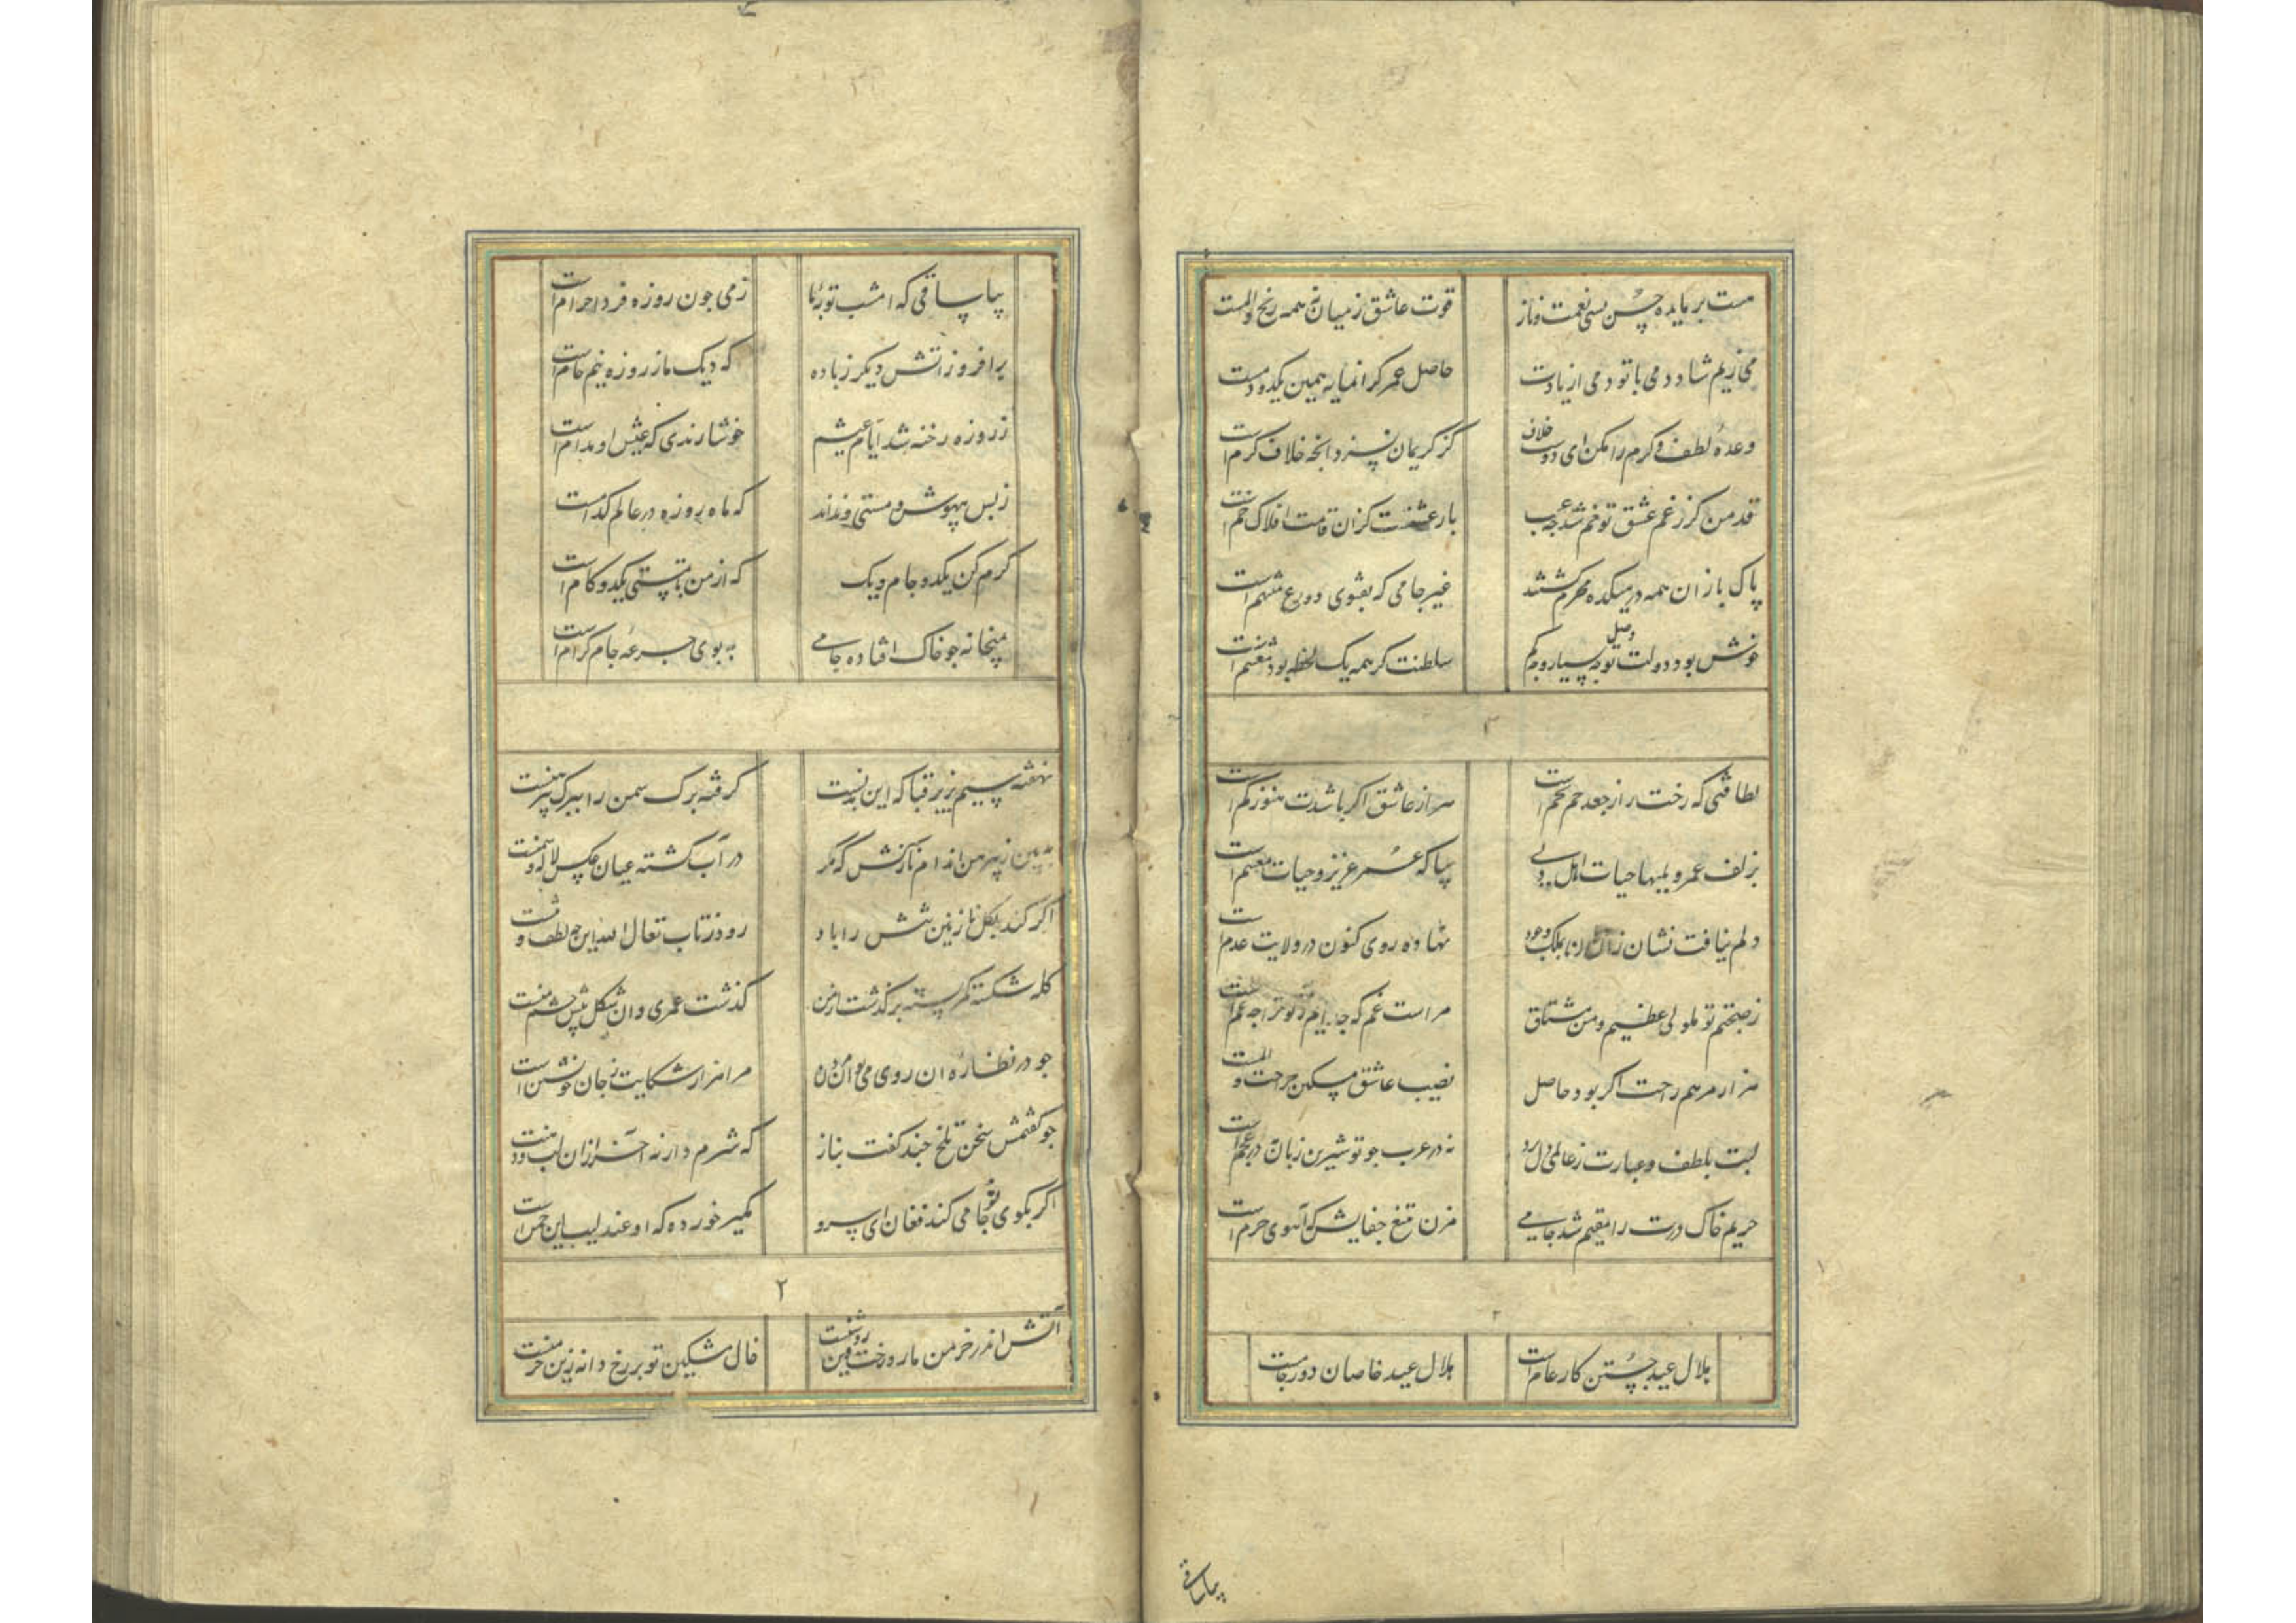 هست بر مایده حسن بسی نعمت و ناز
قوت عاشق ز میان همه رنج و المست
می زیم شاد دمی با تو دمی از یادت
حاصل عمر کرانمایه همین یکدو دمست
وعدهٔ لطف و کرم را مکن ای دوست خلاف
کز کریمان نسزد انچه خلاف کرم است
قد من کر ز غم عشق تو خم شد چه عجب
بار عشقست کزان قامت افلاک خم است
پاک بازان همه در میکده محرم کشتند
غیر جامی که بتقوی و ورع متهم است
خوش بود دولت وصل تو چه بسیار و چه کم
سلطنت کر همه یک لحظه بود مغتنم است
۳
لطافتی که رخت را ز جعد خم بخم است
هزار عاشق اکر باشدت هنوز کم است
بیا که عمر عزیز و حیات مغتنم است
دلم نیافت نشان زان دهان بملک وجود
نهاده روی کنون در ولایت عدم است
ز صحبتم تو ملولی عظیم و من مشتاق
مراست غم که
هزار مرهم راحت اکر بود حاصل
نصیب عاشق مسکین جراحت و المست
لبت بلطف و عبارت ز عالمی دل برد
نه در عرب جو تو شیرین زبان نه در عجم است
حریم خاک درت را مقیم شد جامی
مزن تیغ جفایش که آهوی حرم است
۲
هلال عید جستن کار عام است
هلال عید خاصان دور جامست
بیاساقی
بیا ساقی که امشب توبهٔ ما
ز می جون روزه فردا حرام است
برافروز آتش دیکر ز باده
که دیک ما ز روزه نیم خام است
ز روزه رخنه شد ایام عیشم
خوشا رندی که عیش او مدام است
ز بس بیهوشی و مستی نداند
که ماه روزه در عالم کدامست
کرم کن یکدو جام
که از من تا بمستی یکدو کام است
بمیخانه جو خاک افتاده جامی
به بوی جرعهٔ جام کرام است
نهفته سیم بزیر قبا که این بدنست
کرفته برک سمن را ببر که پیرهنست
ببین ز پیرهن اندام نازکش که مکر
در آب کشته عیان عکس لاله و سمنست
اکر کند بکل نازنین تنش را باد
رود ز تاب تعال الله این چه لطف و تنست
کله شکسته کمر بسته برکذشت از من
کذشت عمری و ان شکل پیش چشم منست
جو در نظارهٔ ان روی می توان مردن
مرا هزار شکایت ز جان خویشتن است
جو کفتمش سخن تلخ جند کفت بناز
که شرم دار نه آخر ازان لب و دهنست
اکر بکوی تو جامی کند فغان ای سرو
مکیر خورده که او عندلیب این جمن است
۲
آتش اندر خرمن ما زد رخت وین روشنست
خال مشکین تو بر رخ دانهٔ زین خرمنست